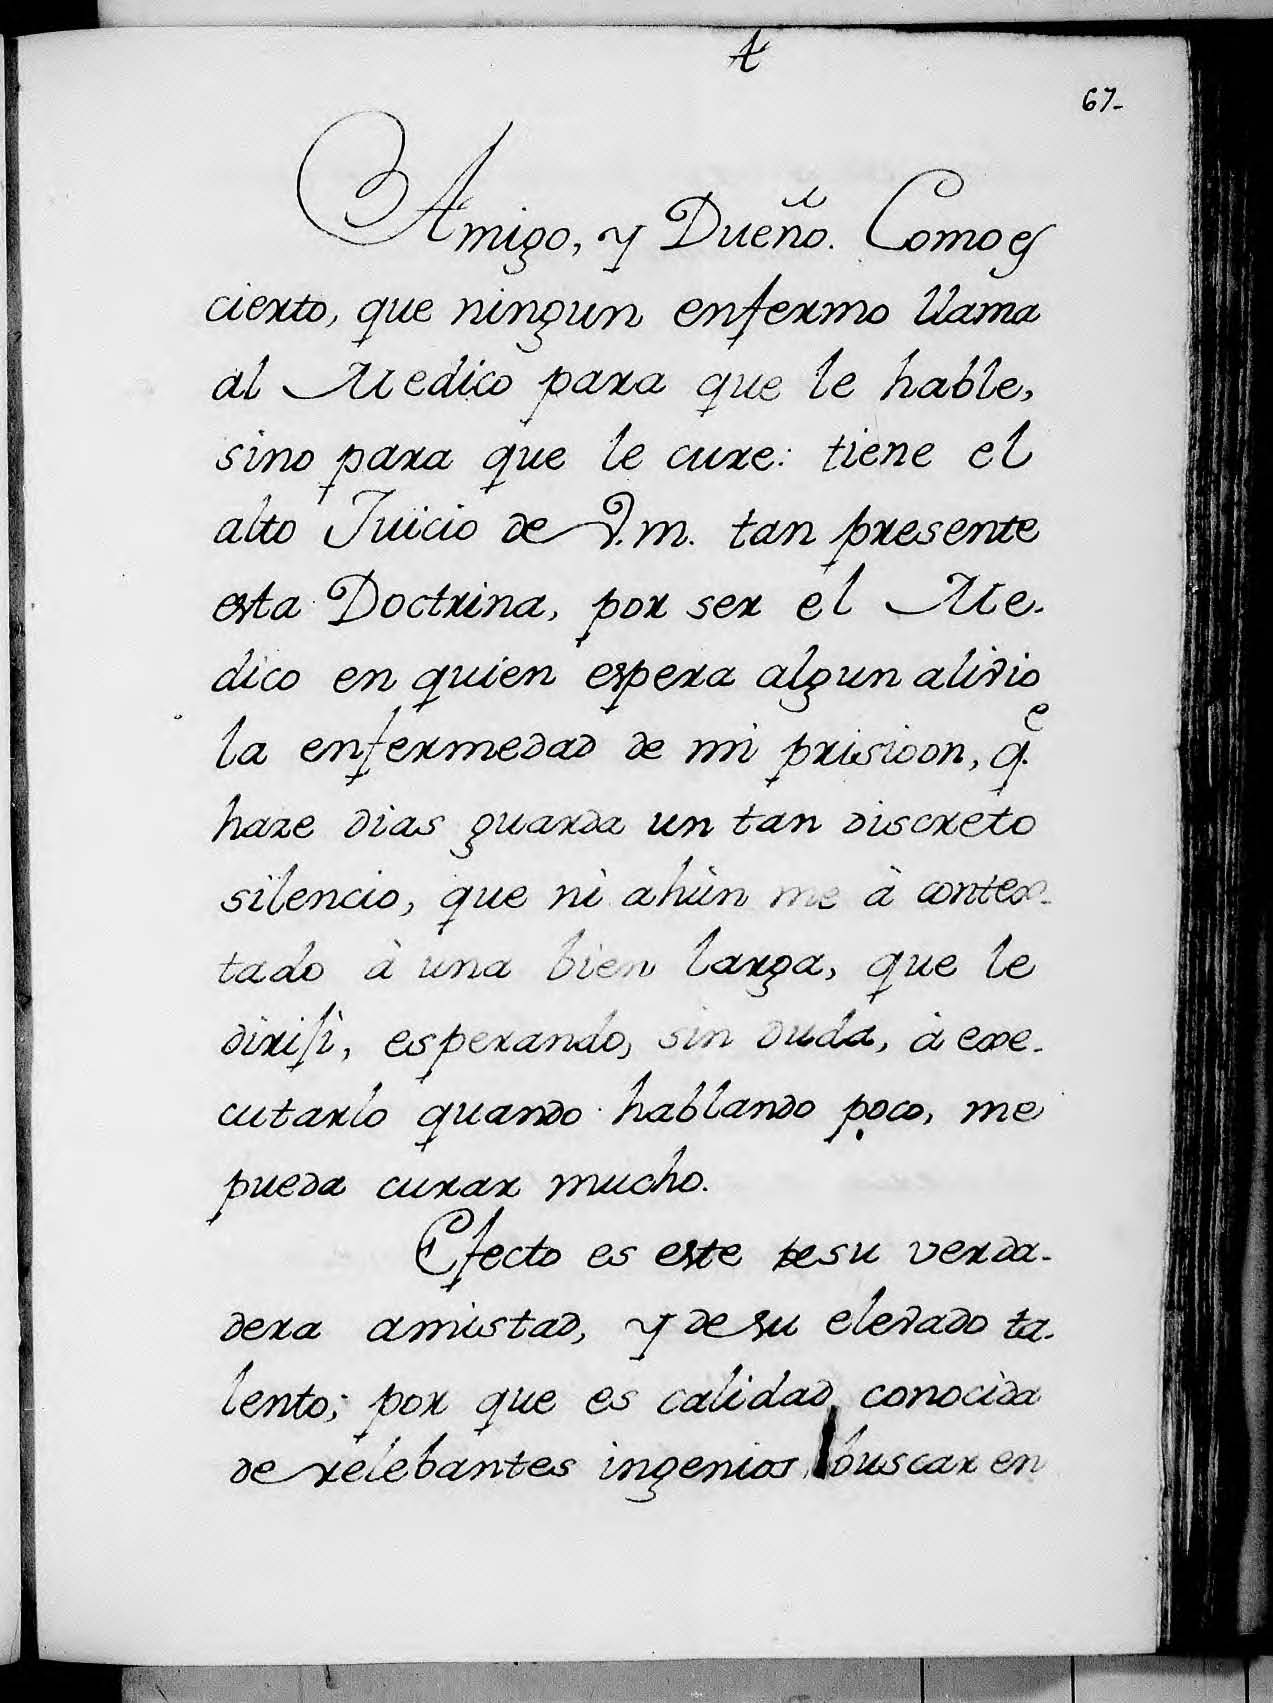 67-
Amigo, y Dueño. Como es
cierto, que ningun enfermo llama
al Medico para que le hable,
sino para que le cure: tiene el
alto Juicio de V.m. tan presente
esta Doctrina, por ser el Me-
dico en quien espera algun alivio
la enfermedad de mi prisioon, q.e
haze dias guarda un tan discreto
silencio, que ni ahùn me à contex-
tado à una bien larga, que le
dirisì, esperando, sin duda, à exe-
cutarlo quando hablando poco, me
pueda curar mucho.
Efecto es este de su verda-
dera amistad, y de su elevado ta-
lento; por que es calidad conocida
de relebantes ingenios, buscar en